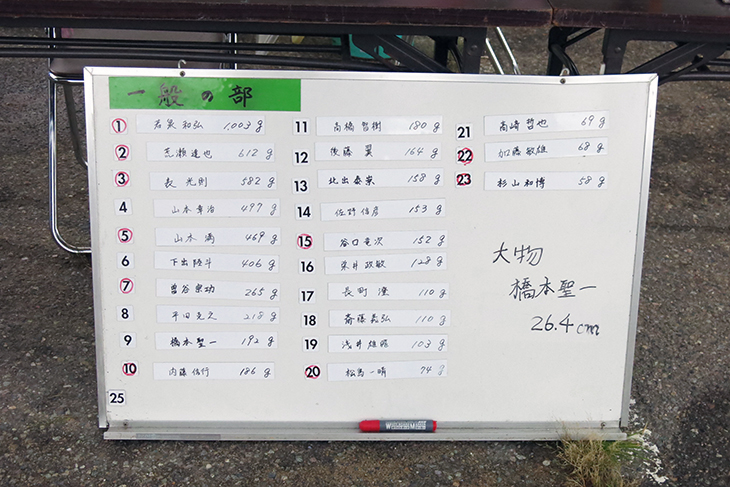 一般の部
1 若泉 和弘 1,003 g
2 荒瀬 達也 612 g
3 長 光則 582 g
4 山本 幸治 497 g
5 山本 満 469 g
6 下出 陸斗 406 g
7 曽谷 宗功 265 g
8 平田 克久 218 g
9 橋本 聖一 192 g
10 内藤 信行 186 g
25
11 高橋 智樹 180 g
12 後藤 翼 164 g
13 北出 泰崇 158 g
14 佐野 信彦 153 g
15 谷口 竜次 152 g
16 政敏 128 g
17 長町 澄 110 g
18 斎藤 昌弘 110 g
19 浅井 雄昭 103 g
20 松馬 一晴 74 g
21 高崎 哲也 69 g
22 加藤 敏雄 68 g
23 杉山 和博 58 g
大物
橋本聖一
26.4cm